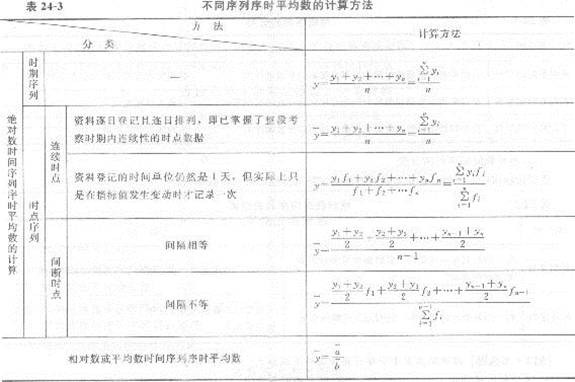 表 24-3 不同序列序时平均数的计算方法
方 法
分 类
计算方法
绝对数时间序列序时平均数的计算
时期序列
—
y̅=(y₁+y₂+⋯+yₙ)/n=∑yᵢ/n
时点序列
连续时点
资料逐日登记且逐日排列，即已掌握了整段考
察时期内连续性的时点数据
y̅=(y₁+y₂+⋯+yₙ)/n=∑yᵢ/n
资料登记的时间单位仍然是1天，但实际上只
是在指标值发生变动时才记录一次
y̅=(y₁f₁+y₂f₂+⋯+yₙfₙ)/(f₁+f₂+⋯fₙ)=∑yᵢfᵢ/∑fᵢ
间断时点
间隔相等
y̅=((y₁+y₂)/2+(y₂+y₃)/2+⋯+(yₙ₋₁+yₙ)/2)/(n−1)
间隔不等
y̅=((y₁+y₂)/2 f₁+(y₂+y₃)/2 f₂+⋯+(yₙ₋₁+yₙ)/2 fₙ₋₁)/∑fᵢ
相对数或平均数时间序列序时平均数
y̅=a̅/b̅